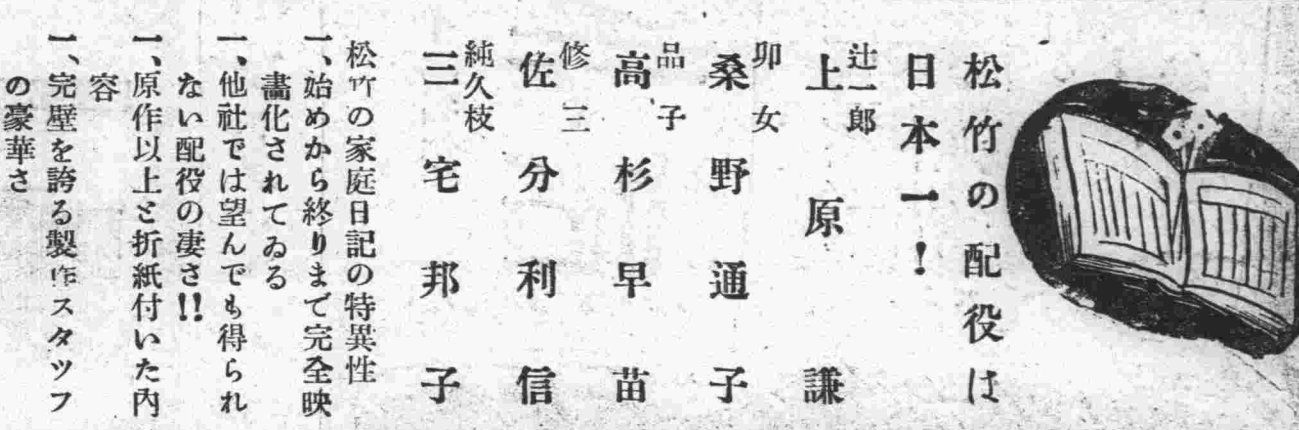 松竹の配役は
日本一!
辻一郎
上原謙
卯女
桑野通子
品子
高杉早苗
修三
佐分利信
純久枝
三宅邦子
松竹の家庭日記の特異性
一、始めから終りまで完全映
畵化されてゐる
一、他社では望んでも得られ
ない配役の凄さ!!
一、原作以上と折紙付いた内
容
一、完壁を誇る製作スタツフ
の豪華さ